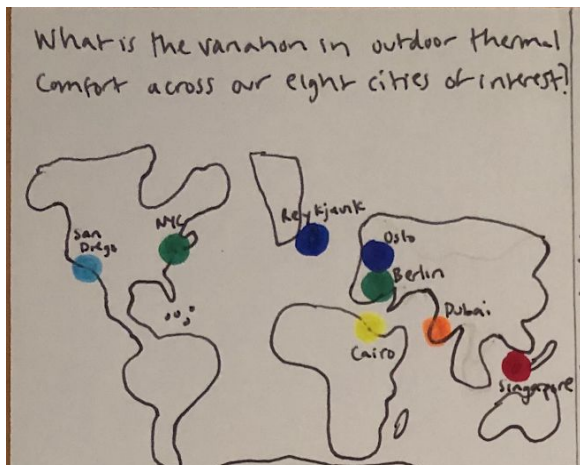 What is the variation in outdoor thermal
comfort across our eight cities of interest?
San
Diego
NYC
Reykjavik
Oslo
Berlin
Dubai
Cairo
Singapore